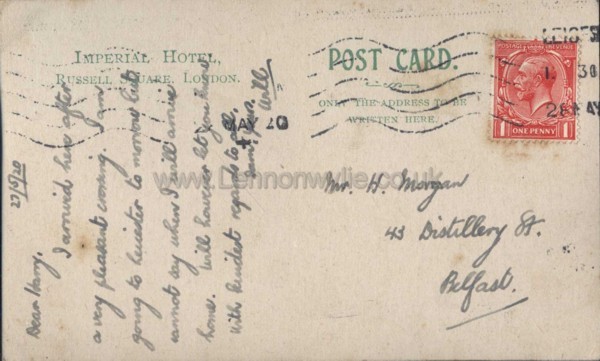 IMPERIAL HOTEL,
RUSSELL SQUARE, LONDON.
POST CARD.
ONLY THE ADDRESS TO BE
WRITTEN HERE.
POSTAGE REVENUE
ONE PENNY
1 1
30
28 MAY
MAY 20
27/5/20
Dear Harry,
I arrived here after
a very pleasant crossing. I am
going to Leicester to morrow but
cannot say when I will arrive
home. Will however let you know
With kindest regards to all.
Will
Mr. H. Morgan
43 Distillery St.
Belfast.
www.Lennonwylie.co.uk